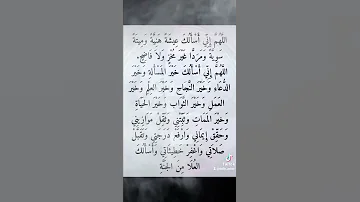 اللَّهُمَّ إِنِّي أَسْأَلُكَ عِيشَةً هَنِيَّةً وَمِيتَةً
سَوِيَّةً وَمَرَدًّا غَيْرَ مُخْزٍ وَلَا فَاضِحٍ.
اللَّهُمَّ إِنِّي أَسْأَلُكَ خَيْرَ المَسْأَلَةِ وَخَيْرَ
الدُّعَاءِ وَخَيْرَ النَّجَاحِ وَخَيْرَ العِلْمِ وَخَيْرَ
العَمَلِ وَخَيْرَ الثَّوَابِ وَخَيْرَ الحَيَاةِ
وَخَيْرَ المَمَاتِ وَثَبِّتْنِي وَثَقِّلْ مَوَازِينِي
وَحَقِّقْ إِيمَانِي وَارْفَعْ دَرَجَتِي وَتَقَبَّلْ
صَلَاتِي وَاغْفِرْ خَطِيئَاتِي وَأَسْأَلُكَ
العُلَا مِنَ الجَنَّةِ